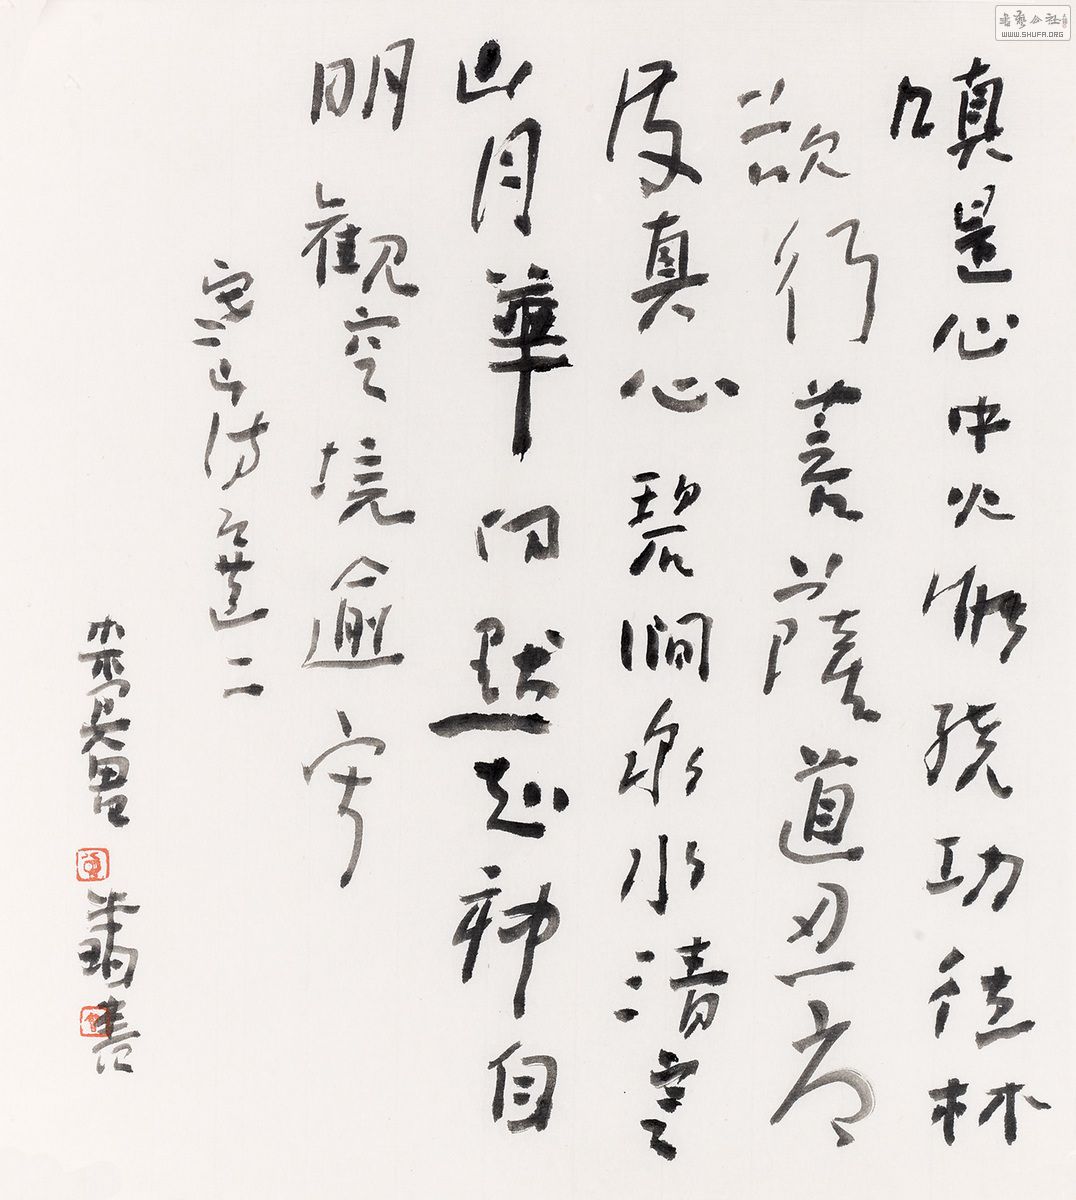 書藝公社
WWW.SHUFA.ORG
嗔是心中火能燒功德林
欲行菩薩道忍辱
護真心碧澗泉水清寒
山月華白默知神自
明觀空境逾寂
寒山詩選二
書